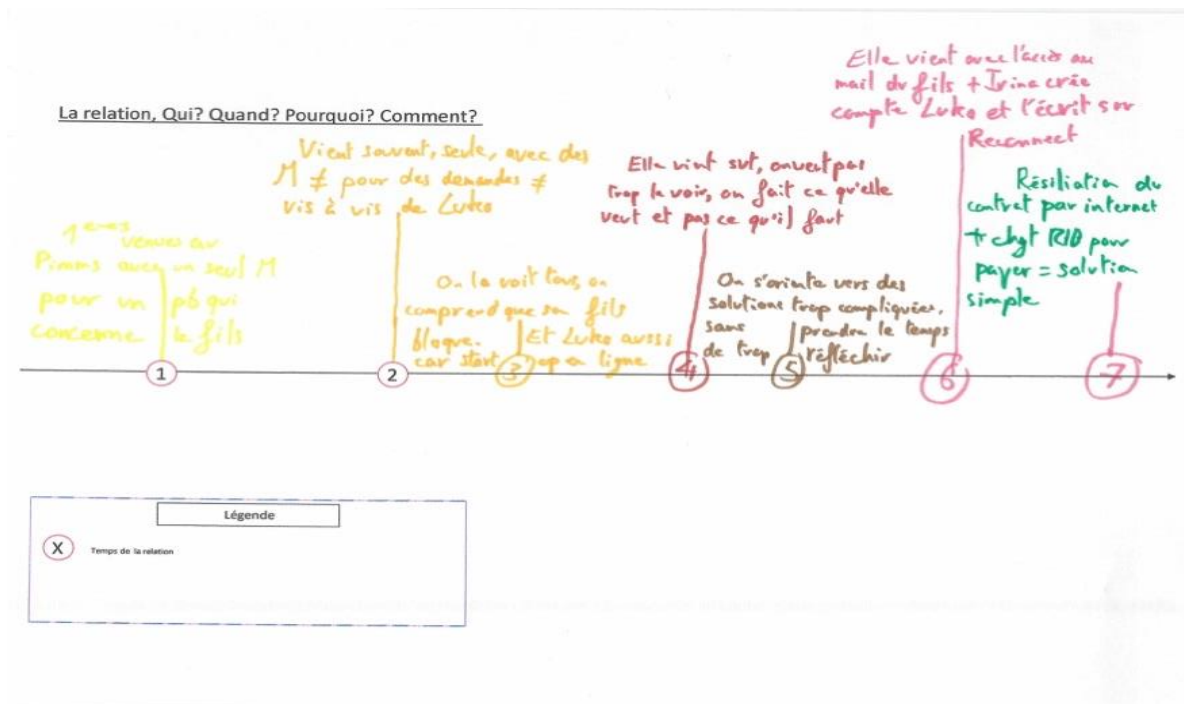 La relation, Qui? Quand? Pourquoi? Comment?
1ères venues au
Pimms avec un seul M
pour un pb qui
concerne le fils
1
Vient souvent, seule, avec des
M ≠ pour des demandes ≠
vis à vis de Luko
2
On la voit tous, on
comprend que son fils
bloque. Et Luko aussi
car start up en ligne
3
Elle vient svt, on veut pas
trop la voir, on fait ce qu'elle
veut et pas ce qu'il faut
4
On s'oriente vers des
solutions trop compliquées,
sans prendre le temps
de trop réfléchir
5
Elle vient avec l'accès au
mail du fils + Irina crée
compte Luko et l'écrit sur
Reconnect
6
Résiliation du
contrat par internet
+ chgt RIB pour
payer = solution
simple
7
Légende
X Temps de la relation